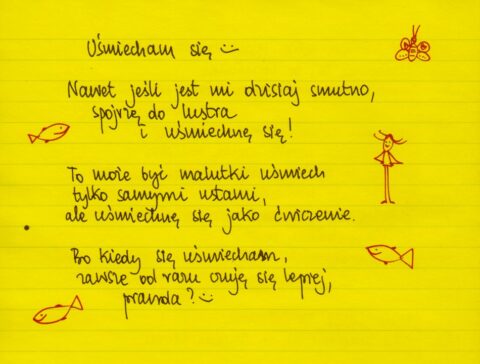 Uśmiecham się :)
Nawet jeśli jest mi dzisiaj smutno,
spojrzę do lustra
i uśmiechnę się!
To może być malutki uśmiech
tylko samymi ustami,
ale uśmiechnę się jako ćwiczenie.
Bo kiedy się uśmiecham,
zawsze od razu czuję się lepiej,
prawda? :)